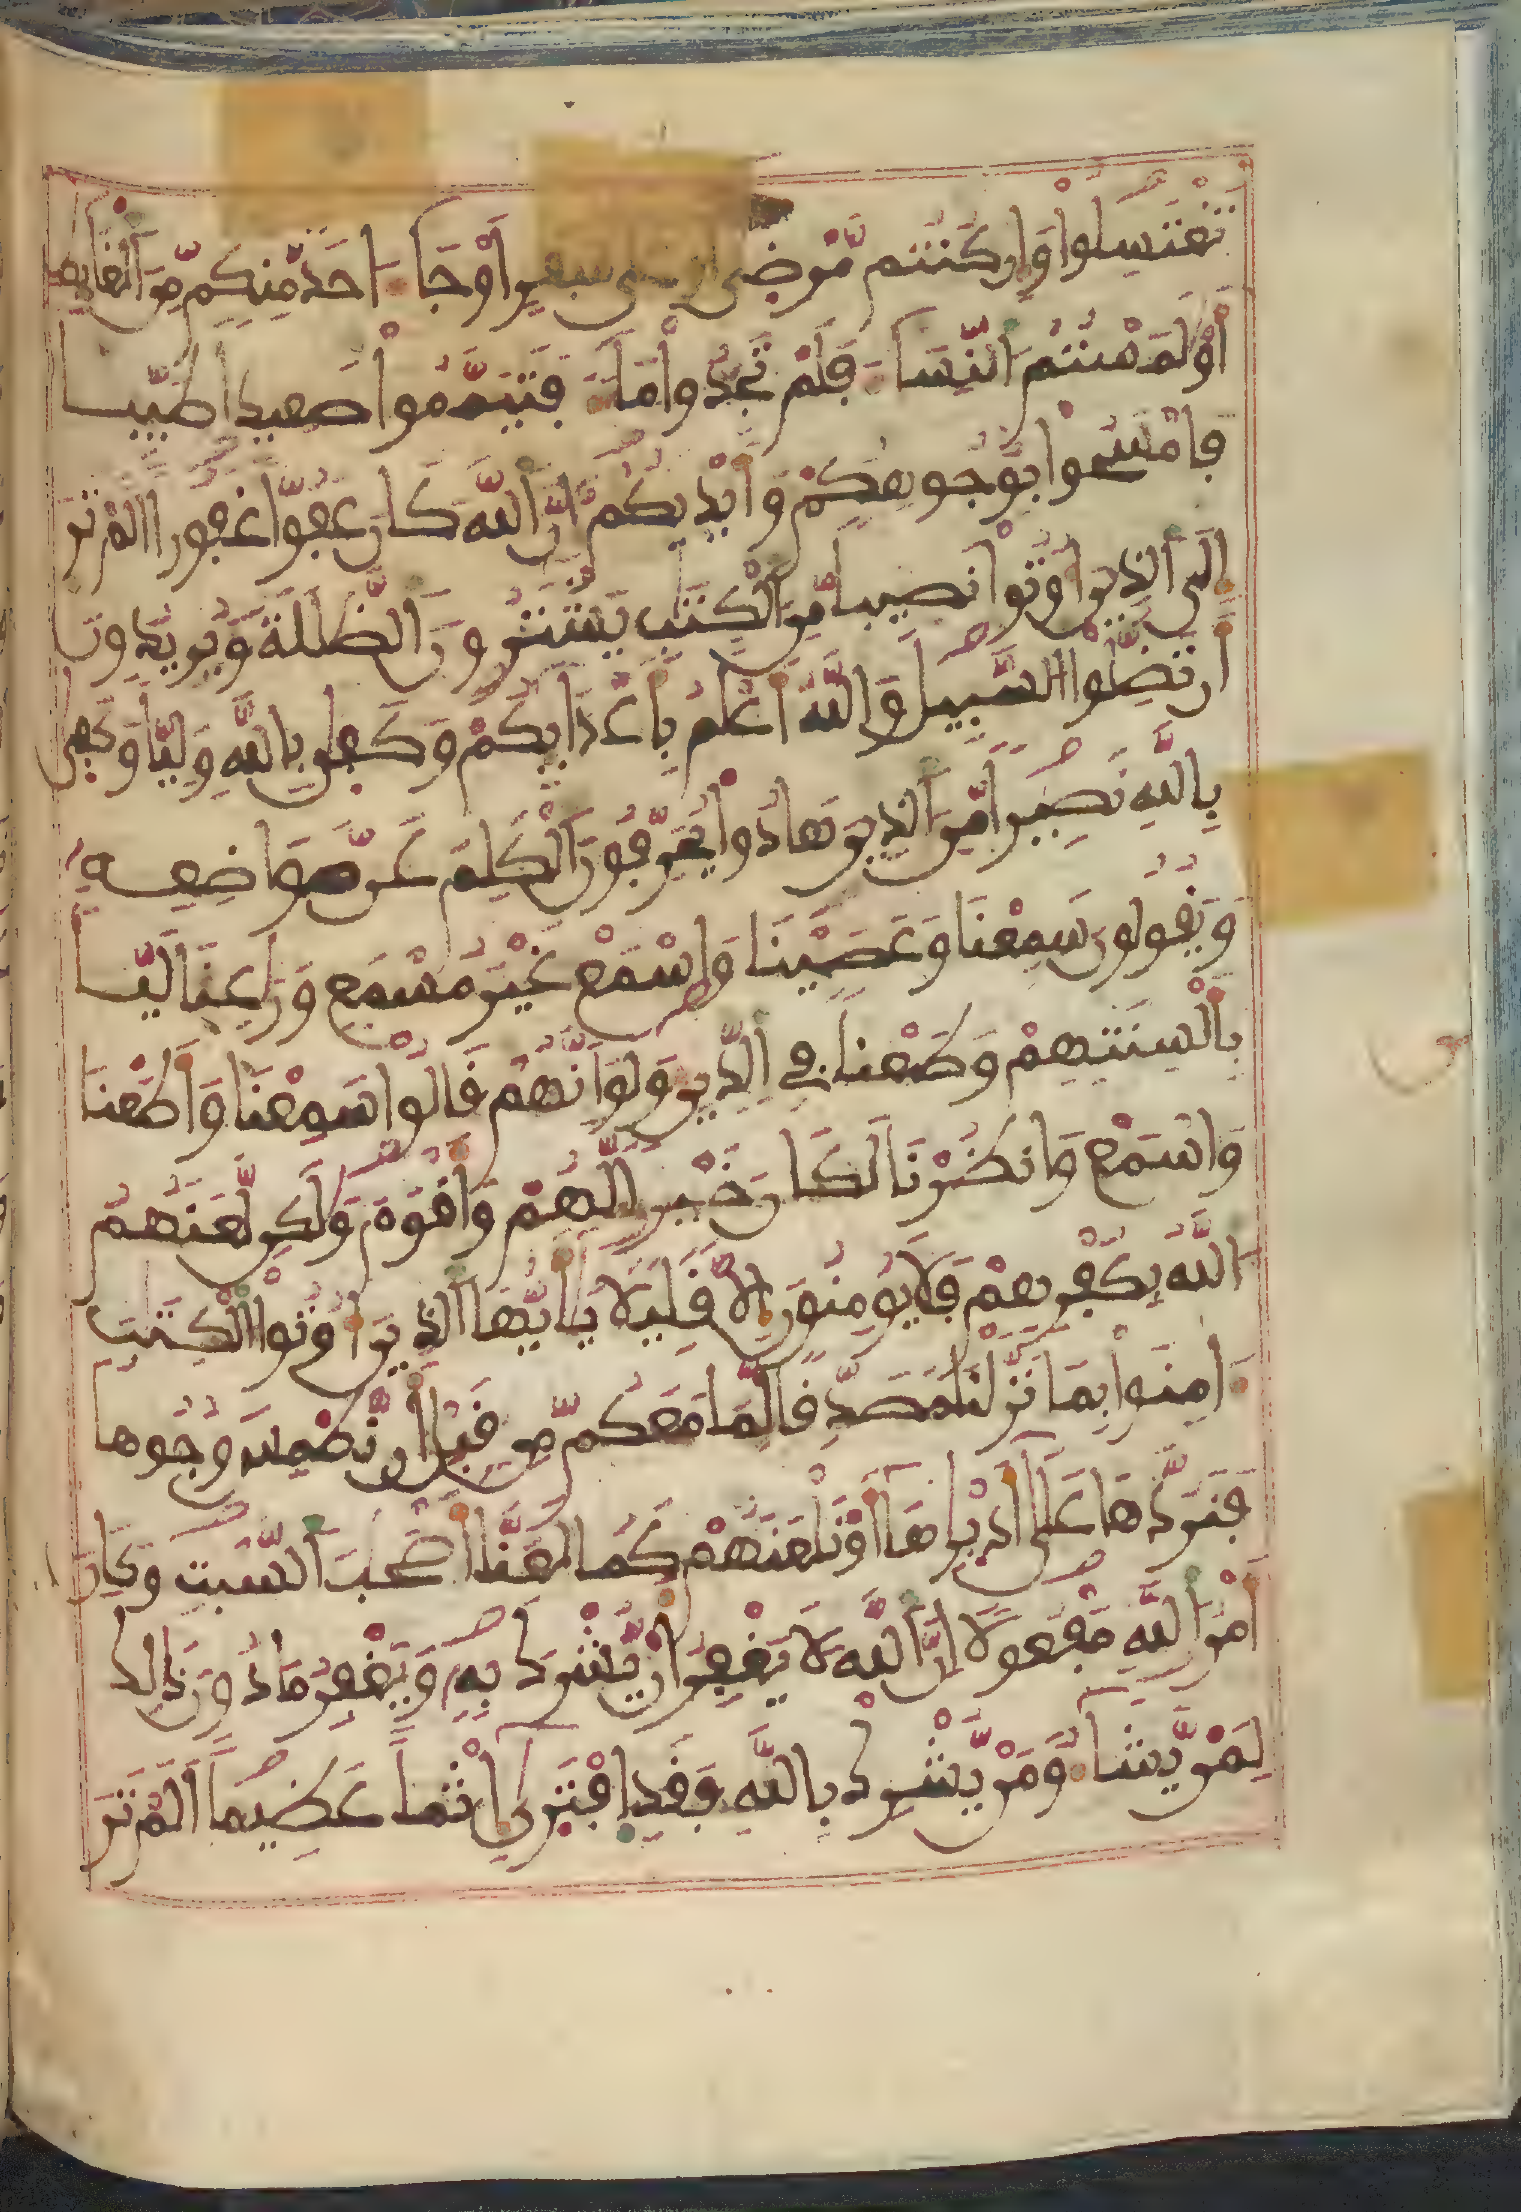 تَغْتَسِلُواْ وَإِن كُنتُم مَّرْضَىٰ أَوْ عَلَىٰ سَفَرٍ اَوْ جَآءَ احَدٌ مِّنكُم مِّنَ ٱلْغَآئِطِ
أَوْ لَٰمَسْتُمُ ٱلنِّسَآءَ فَلَمْ تَجِدُواْ مَآءً فَتَيَمَّمُواْ صَعِيداً طَيِّباً
فَامْسَحُواْ بِوُجُوهِكُمْ وَأَيْدِيكُمُ إِنَّ ٱللَّهَ كَانَ عَفُوّاً غَفُوراً الَمْ تَرَ
إِلَى ٱلذِينَ أُوتُواْ نَصِيباً مِّنَ ٱلْكِتَٰبِ يَشْتَرُونَ ٱلضَّلَٰلَةَ وَيُرِيدُونَ
أَن تَضِلُّواْ السَّبِيلَ وَاللَّهُ أَعْلَمُ بِأَعْدَآئِكُمْ وَكَفَىٰ بِاللَّهِ وَلِيّاً وَكَفَىٰ
بِاللَّهِ نَصِيراً مِّنَ ٱلذِينَ هَادُواْ يُحَرِّفُونَ ٱلْكَلِمَ عَن مَّوَاضِعِهِ
وَيَقُولُونَ سَمِعْنَا وَعَصَيْنَا وَاسْمَعْ غَيْرَ مُسْمَعٍ وَرَٰعِنَا لَيّاً
بِأَلْسِنَتِهِمْ وَطَعْناً فِي الدِّينِ وَلَوَ اَنَّهُمْ قَالُواْ سَمِعْنَا وَأَطَعْنَا
وَاسْمَعْ وَانظُرْنَا لَكَانَ خَيْراً لَّهُمْ وَأَقْوَمَ وَلَٰكِن لَّعَنَهُمُ
اللَّهُ بِكُفْرِهِمْ فَلَا يُومِنُونَ إِلَّا قَلِيلًا يَٰأَيُّهَا ٱلذِينَ أُوتُواْ الْكِتَٰبَ
ءَامِنُواْ بِمَا نَزَّلْنَا مُصَدِّقاً لِّمَا مَعَكُم مِّن قَبْلِ أَن نَّطْمِسَ وُجُوهاً
فَنَرُدَّهَا عَلَىٰ أَدْبَٰرِهَا أَوْ نَلْعَنَهُمْ كَمَا لَعَنَّا أَصْحَٰبَ ٱلسَّبْتِ وَكَانَ
أَمْرُ ٱللَّهِ مَفْعُولًا اِنَّ ٱللَّهَ لَا يَغْفِرُ أَنْ يُّشْرَكَ بِهِ وَيَغْفِرُ مَا دُونَ ذَٰلِكَ
لِمَنْ يَّشَآءُ وَمَنْ يُّشْرِكْ بِاللَّهِ فَقَدِ اِفْتَرَىٰ إِثْماً عَظِيماً اَلَمْ تَرَ